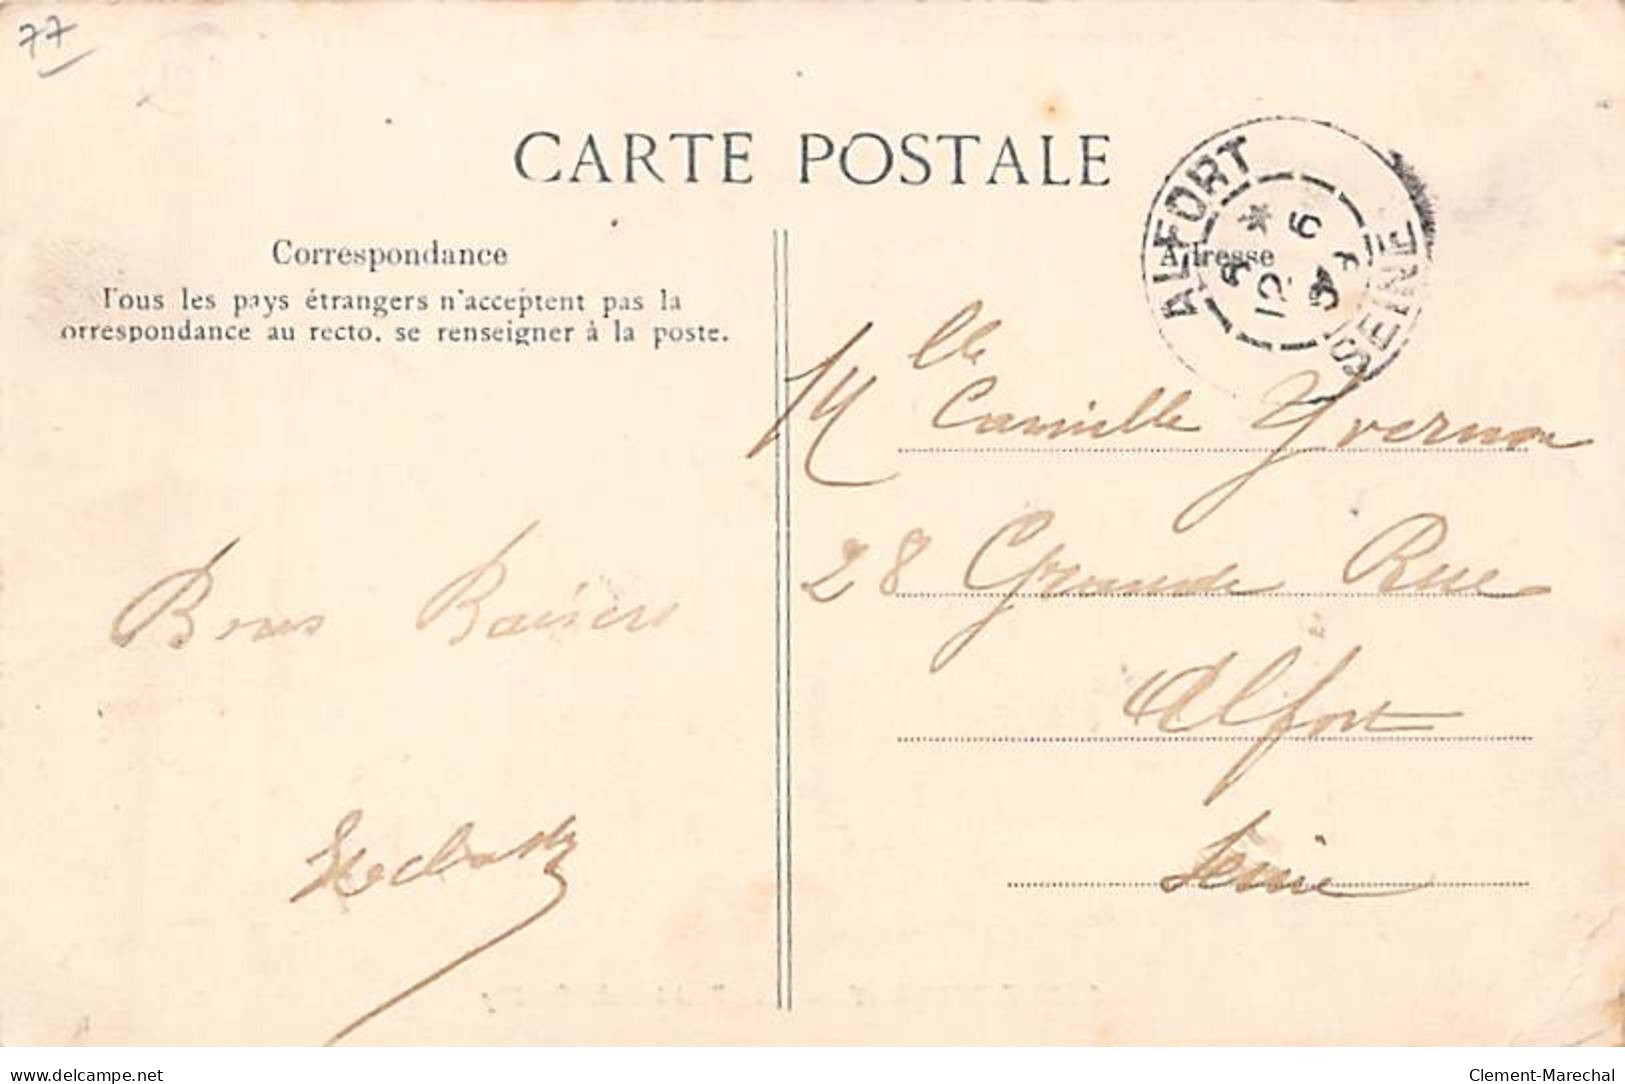 77
CARTE POSTALE
ALFORT
SEINE
Correspondance
Adresse
Tous les pays étrangers n'acceptent pas la
orrespondance au recto, se renseigner à la poste.
Mlle Camille Yvernon
28 Grande Rue
Alfort
Seine
Bons Baisers
delcampe.net
Clement-Marechal